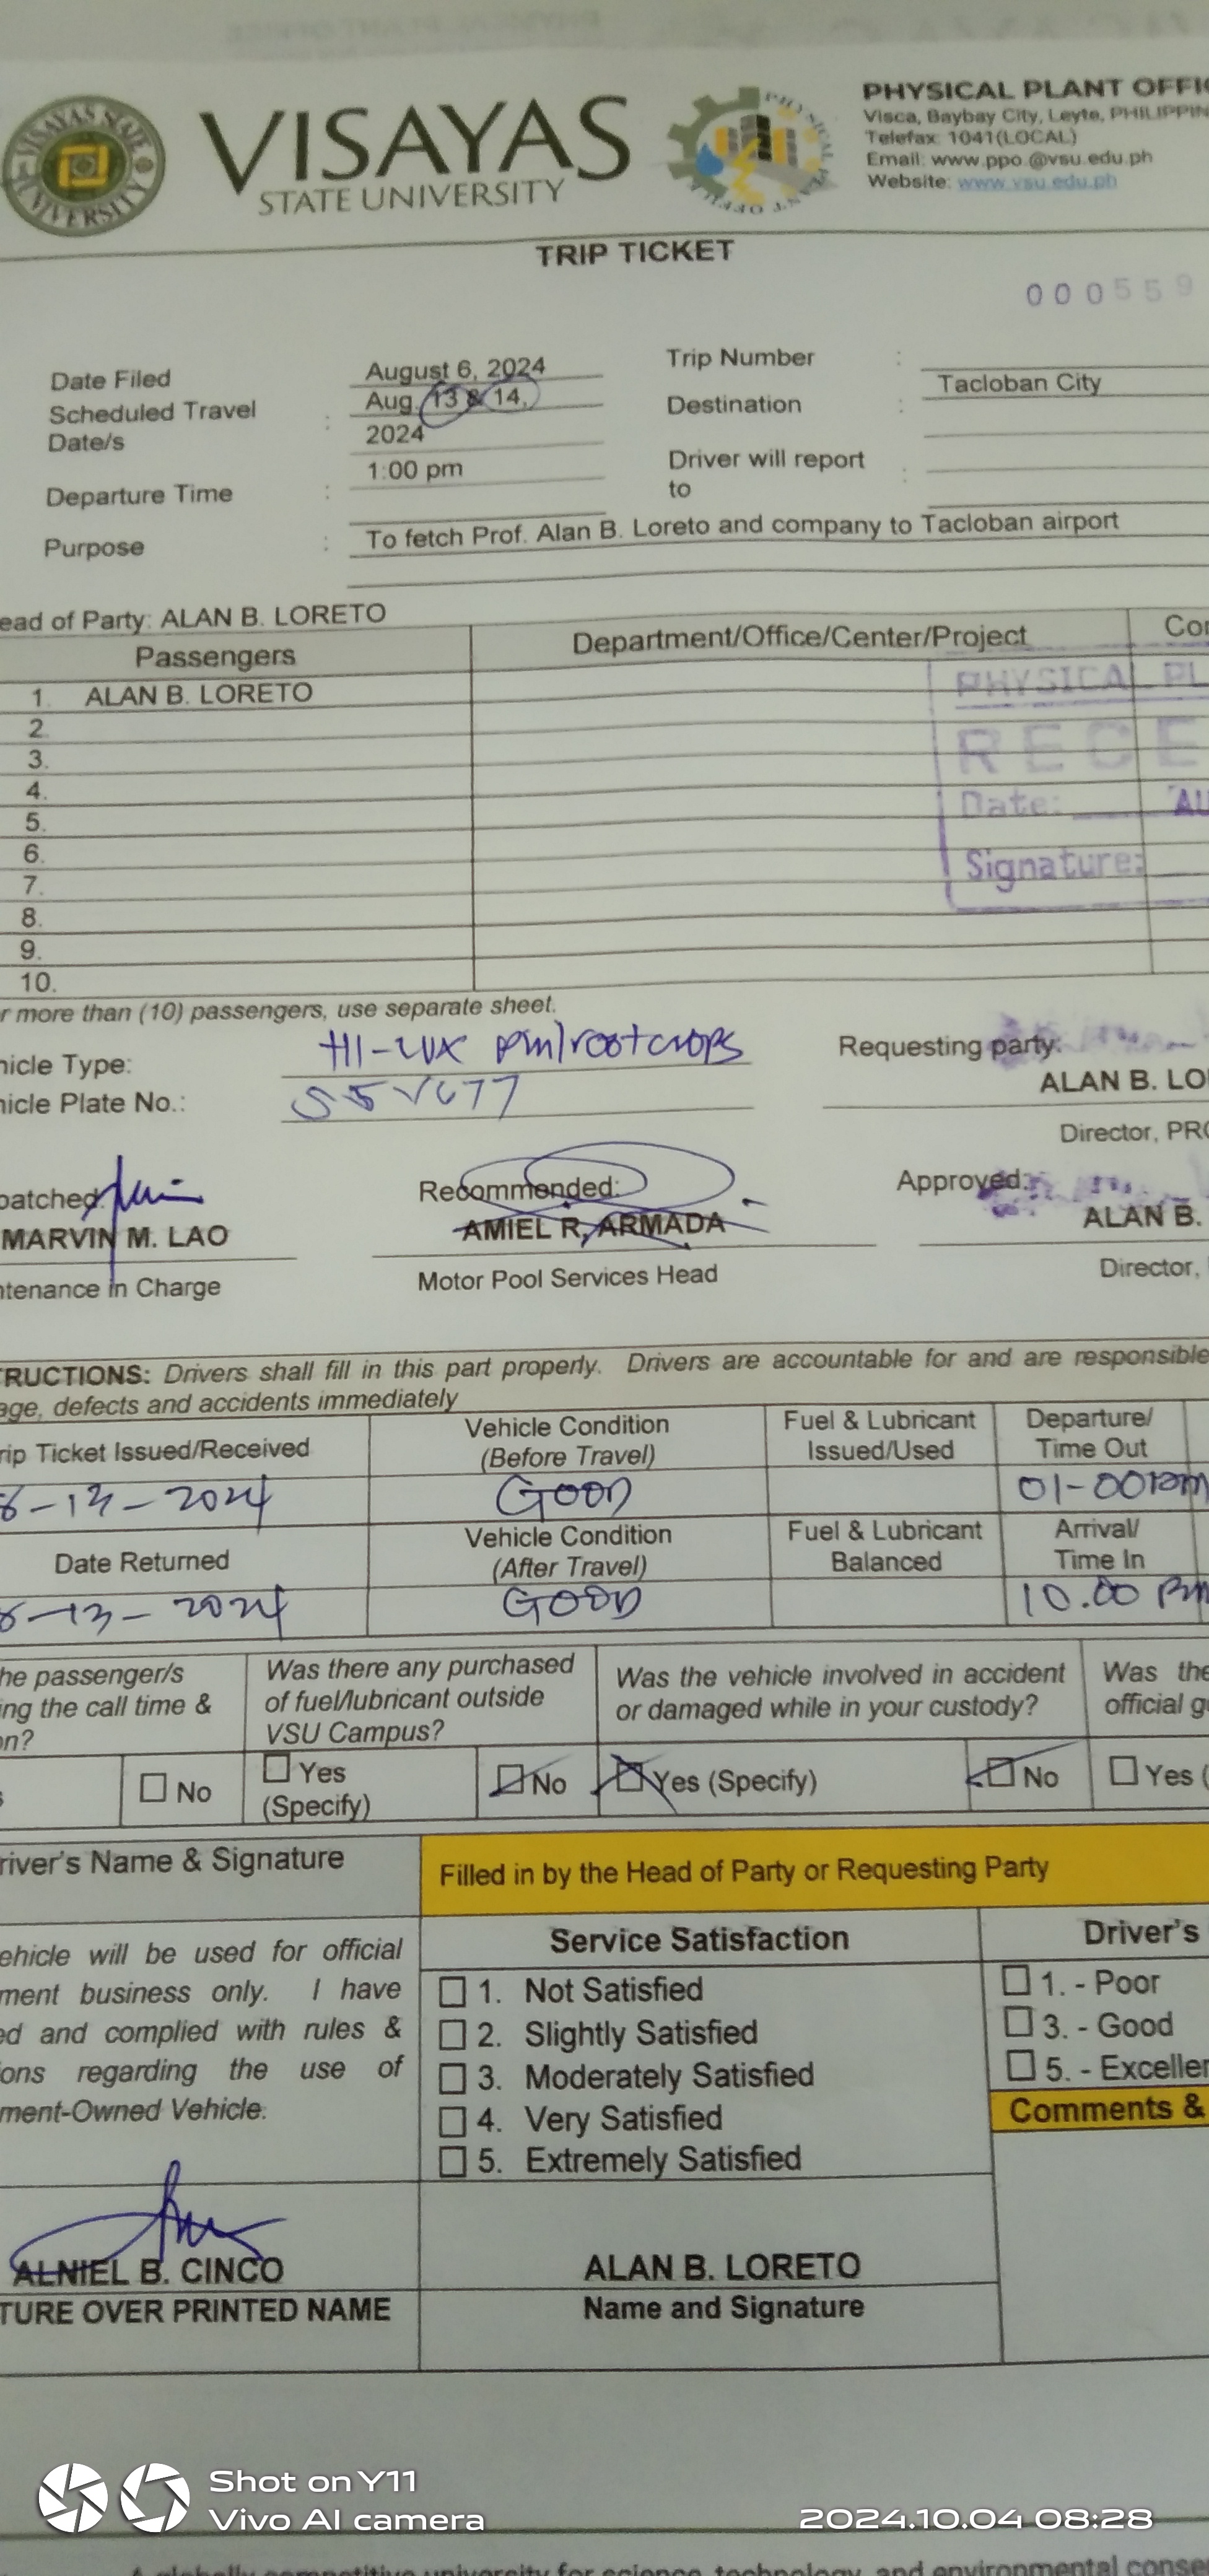 VISAYAS STATE UNIVERSITY
VISAYAS
STATE UNIVERSITY
PHYSICAL PLANT OFFIC
Visca, Baybay City, Leyte, PHILIPPIN
Telefax: 1041(LOCAL)
Email: www.ppo.@vsu.edu.ph
Website: www.vsu.edu.ph
TRIP TICKET
000559
Date Filed August 6, 2024
Trip Number :
Scheduled Travel Date/s : Aug. 13 & 14, 2024
Destination : Tacloban City
Departure Time : 1:00 pm
Driver will report to :
Purpose : To fetch Prof. Alan B. Loreto and company to Tacloban airport
ead of Party: ALAN B. LORETO
Passengers Department/Office/Center/Project Co
1. ALAN B. LORETO
2.
3.
4.
5.
6.
7.
8.
9.
10.
PHYSICAL PL
RECE
Date: AU
Signature:
r more than (10) passengers, use separate sheet.
hicle Type: HI-LUX pm/rootcrops
Requesting party:
hicle Plate No.:
ALAN B. LO
Director, PR
patched:
Recommended:
Approved:
MARVIN M. LAO
AMIEL R. ARMADA
ALAN B.
ntenance in Charge
Motor Pool Services Head
Director,
TRUCTIONS: Drivers shall fill in this part properly. Drivers are accountable for and are responsible
age, defects and accidents immediately
rip Ticket Issued/Received
Vehicle Condition (Before Travel)
Fuel & Lubricant Issued/Used
Departure/ Time Out
8-13-2024 GOOD 01-00pm
Date Returned
Vehicle Condition (After Travel)
Fuel & Lubricant Balanced
Arrival/ Time In
8-13-2024 GOOD 10.00 Pm
he passenger/s
ing the call time &
on?
Was there any purchased
of fuel/lubricant outside
VSU Campus?
Was the vehicle involved in accident
or damaged while in your custody?
Was the
official g
s No
Yes (Specify) No
Yes (Specify) No
Yes (
river's Name & Signature
Filled in by the Head of Party or Requesting Party
ehicle will be used for official
ment business only. I have
ed and complied with rules &
ons regarding the use of
ment-Owned Vehicle.
Service Satisfaction
1. Not Satisfied
2. Slightly Satisfied
3. Moderately Satisfied
4. Very Satisfied
5. Extremely Satisfied
Driver's
1. - Poor
3. - Good
5. - Exceller
Comments &
ALNIEL B. CINCO
TURE OVER PRINTED NAME
ALAN B. LORETO
Name and Signature
Shot on Y11
Vivo AI camera
2024.10.04 08:28